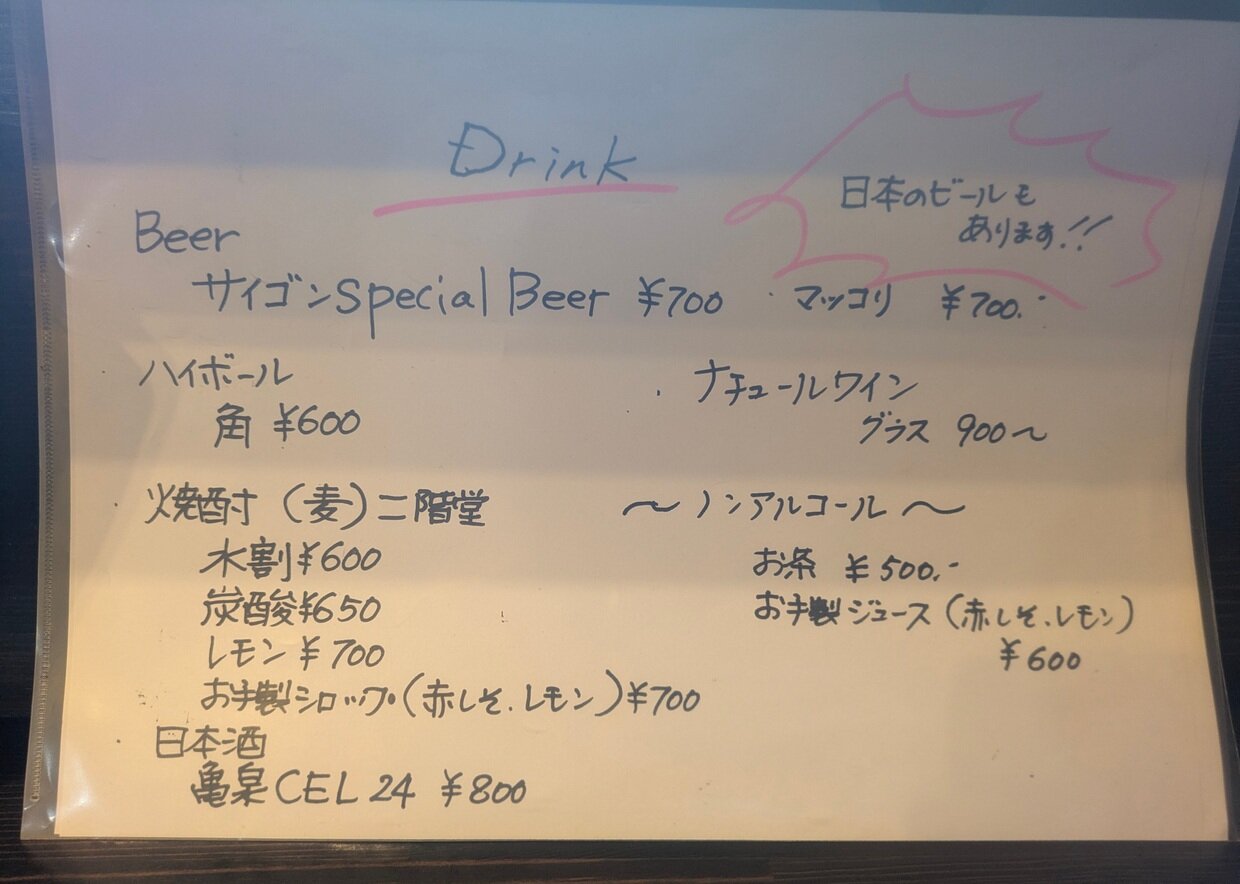 Drink
日本のビールも
あります!!
Beer
サイゴンspecial Beer ¥700
・マッコリ ¥700.-
ハイボール
角 ¥600
・ナチュールワイン
グラス 900〜
焼酎 (麦)二階堂
水割¥600
炭酸¥650
レモン¥700
お手製シロップ(赤しそ.レモン)¥700
・日本酒
亀泉CEL 24 ¥800
〜ノンアルコール〜
お茶 ¥500.-
お手製ジュース(赤しそ.レモン)
¥600